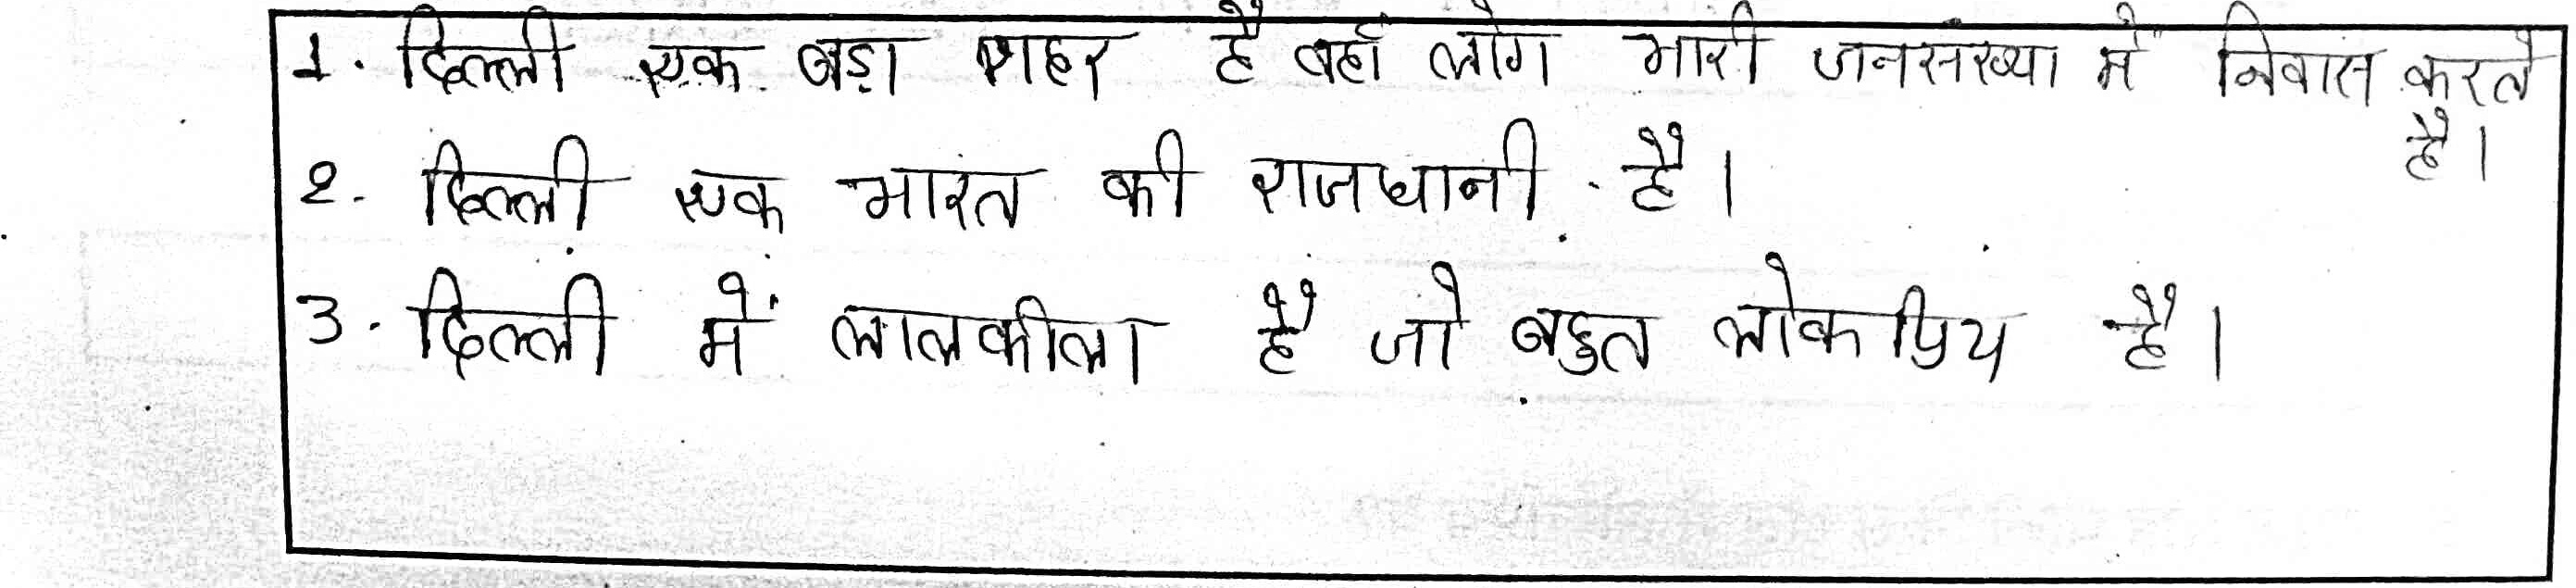 1. दिल्ली एक बड़ा शहर है वहाँ लोग भारी जनसंख्या में निवास करते
है।
2. दिल्ली एक भारत की राजधानी है।
3. दिल्ली में लालकीला है जो बहुत लोकप्रिय है।